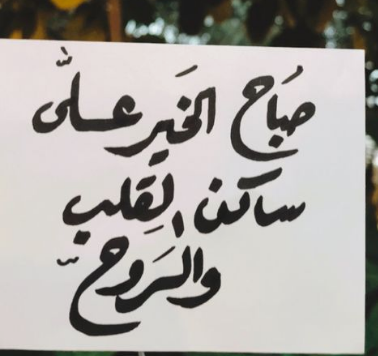 صَبَاح الخَير علىّ
ساكن القِلب
والرَوح